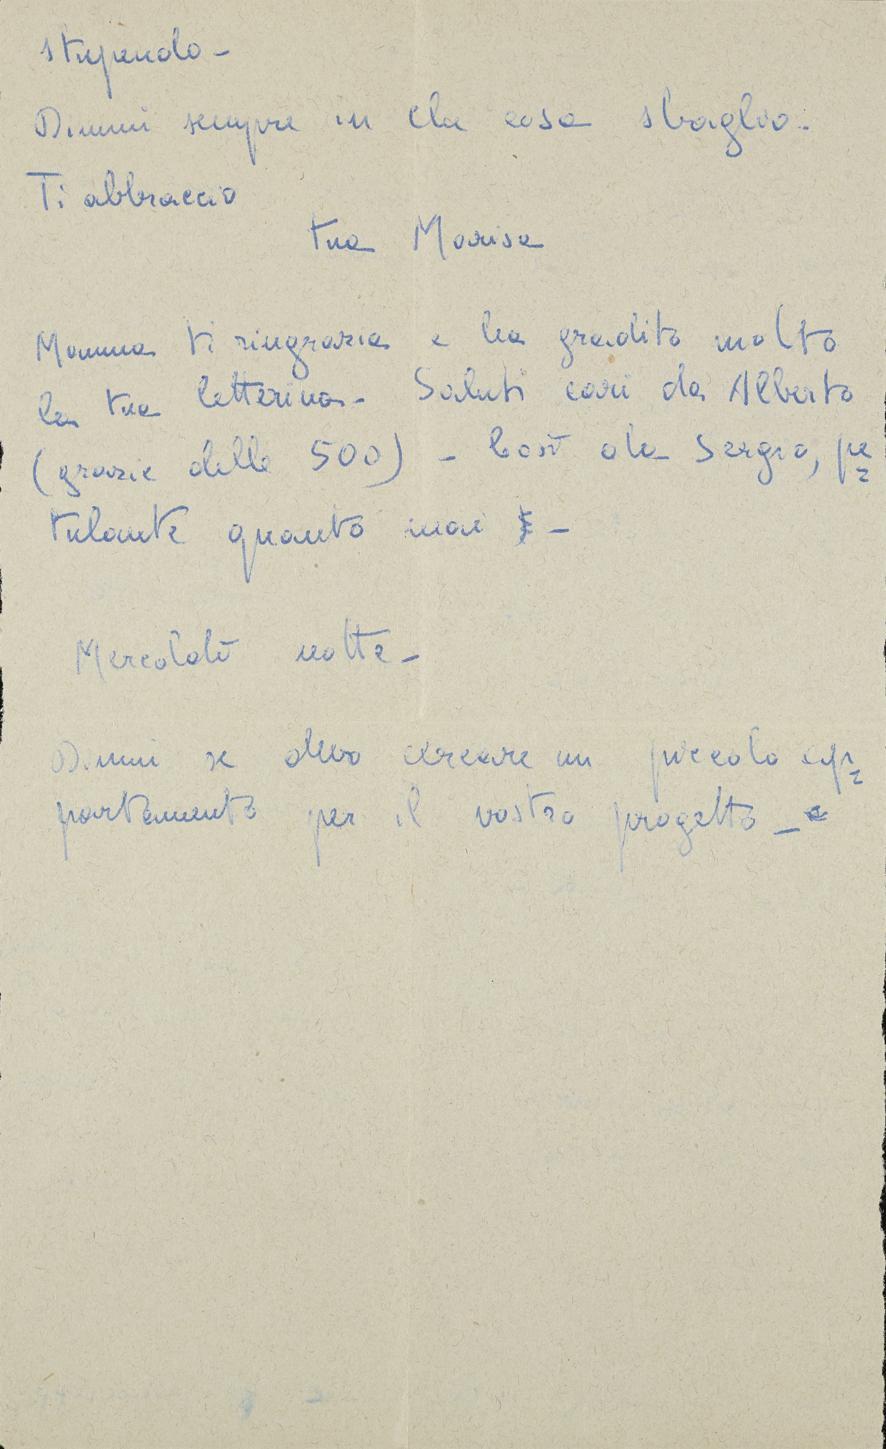 stupendo -
Dimmi sempre in che cosa sbaglio.
Ti abbraccio
tua Marisa
Mamma ti ringrazia e ha gradito molto
la tua letterina - Saluti cari da Alberto
(grazie delle 500) - Così da Sergio, pe=
tulante quanto mai -
Mercoledì notte -
Dimmi se devo cercare un piccolo ap=
partamento per il vostro progetto -